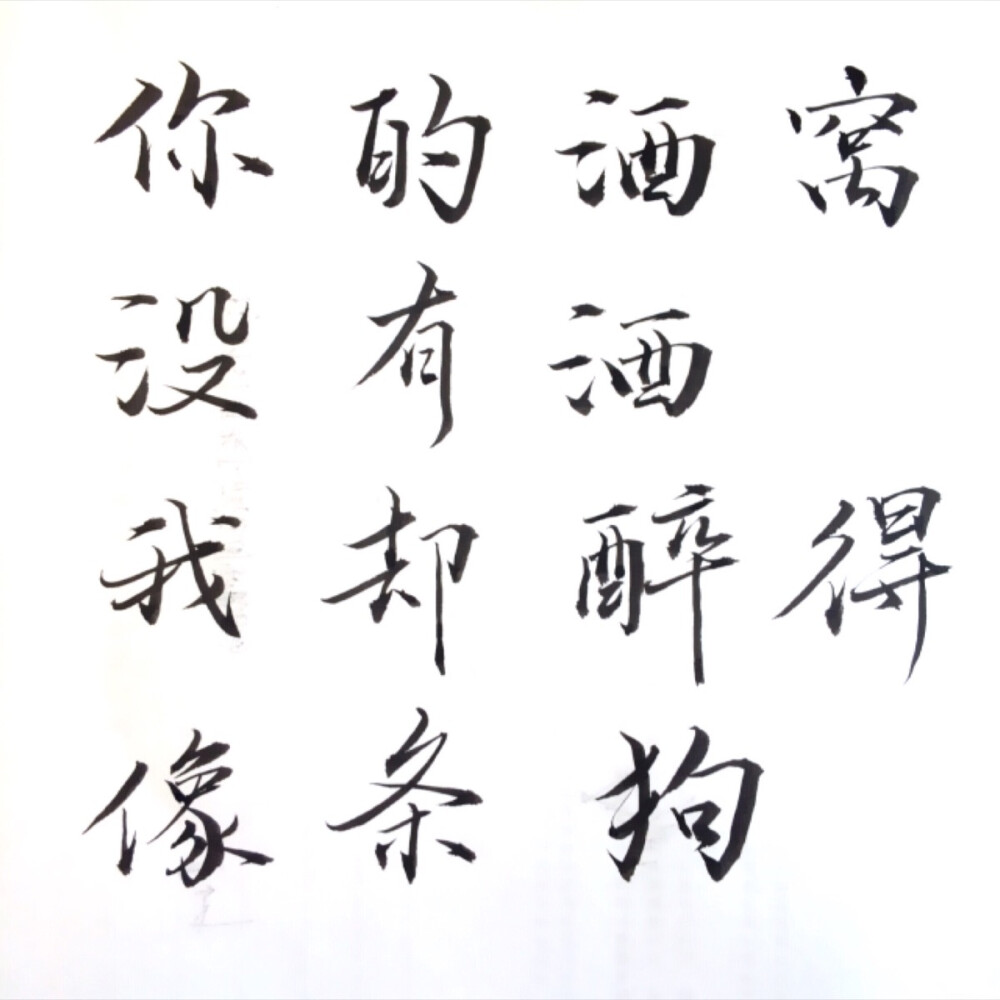 你的酒窝
没有酒
我却醉得
像条狗